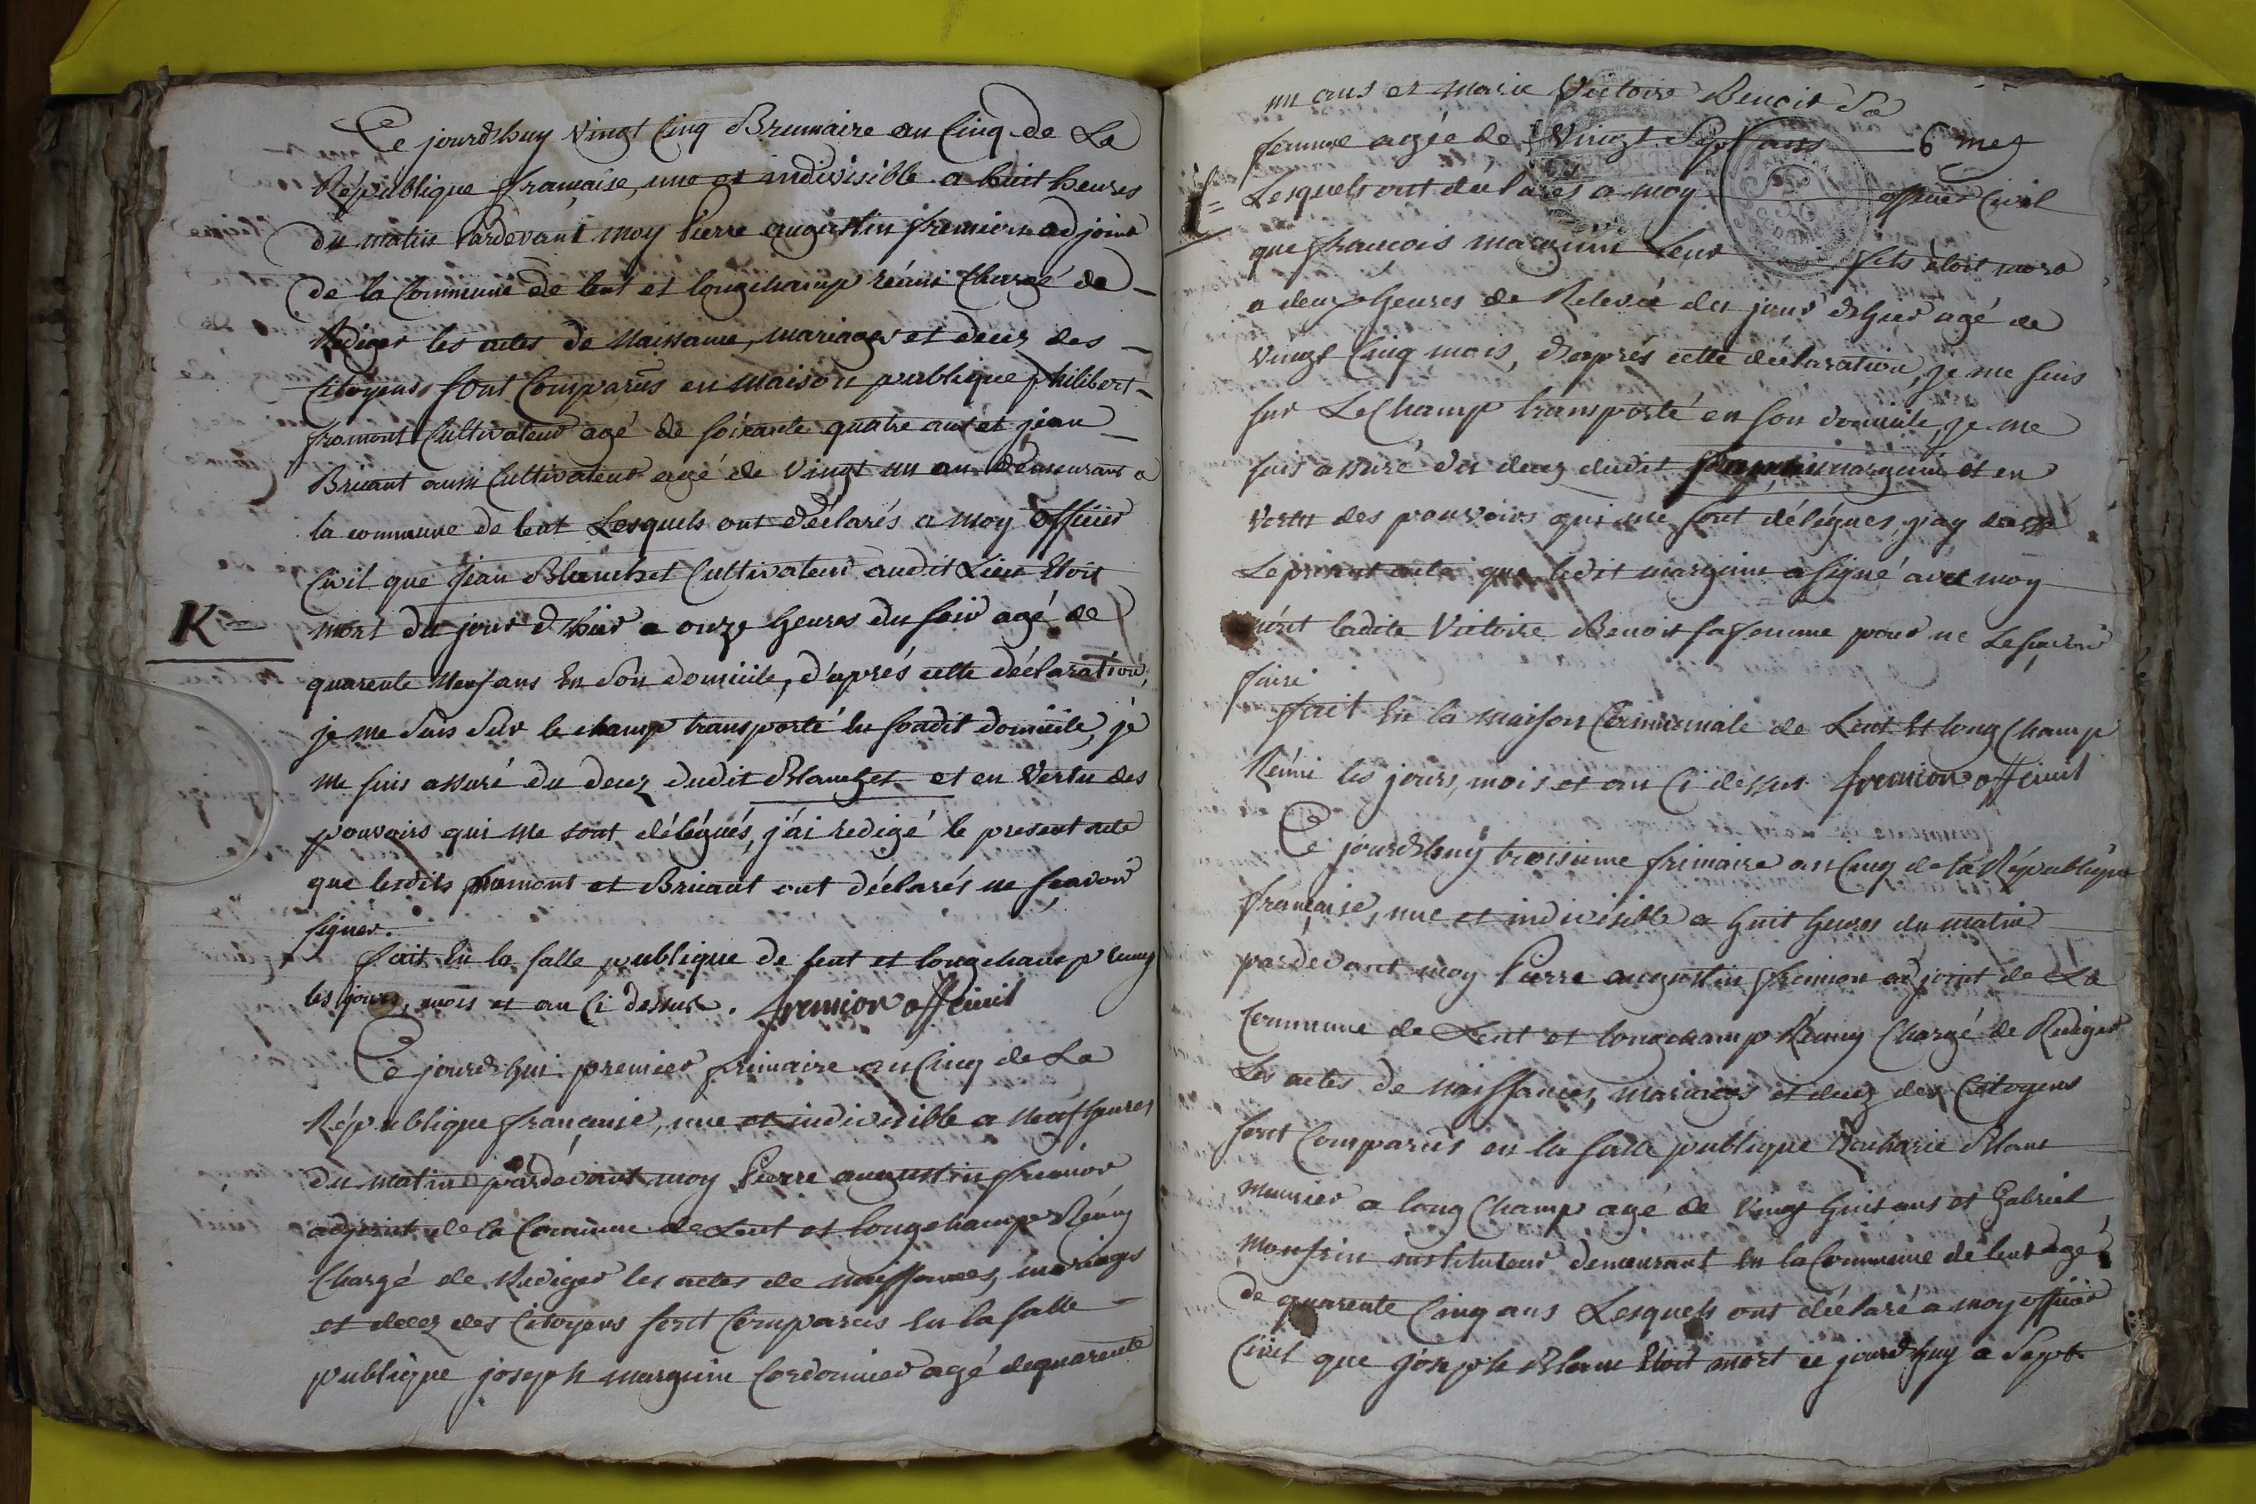 Ce jourd'huy vingt Cinq Brumaire an Cinq de La
République française, une et indivisible a huit heures
du matin Pardevant moy Pierre augustin fremion adjoint
de la Commune de lent et longchamp réuni Chargé de
Rédiger les actes de Naissance, mariages et decez des
Citoyens sont Comparus en maison publique philibert
fromont Cultivateur agé de soixante quatre ans et jean
Bruant aussi Cultivateur agé de vingt un an demeurans a
la commune de lent Lesquels ont déclarés a moy officier
Civil que Jean Blanchet Cultivateur audit Lieu Etoit
K= mort du jour d'hier a onze heures du soir agé de
quarente neuf ans En son domicile, d'aprés cette déclaration,
je me suis sur le champ transporté En sondit domicile, je
me suis assuré du decez dudit Blanchet et en vertu des
pouvoirs qui me sont délégués, j'ai redigé le present acte
que lesdits fromont et Bruant ont déclarés ne sçavoir
signer.
fait En la salle publique de lent et longchamp reuny
les jours, mois et an Ci dessus. fremion off civil
Ce jourd'hui premier frimaire an Cinq de La
République française, une et indivisible a neuf heures
du matin pardevant moy Pierre augustin fremion
adjoint de la Commune de Lent et longchamp Réuny
Chargé de Rediger les actes de naissances, mariages
et decez des Citoyens sont Comparus En la salle
publique joseph marguin Cordonnier agé de quarente
un ans et marie Victoire Benoit Sa
femme agée de vingt Sept ans 6 me
Lesquels ont déclarés a moy officier Civil
que francois marguin leur fils étoit mort
a deux heures de Relevée du jour d'hier agé de
vingt Cinq mois, d'aprés cette déclaration, je me suis
sur Le Champ transporté en son domicile, je me
suis assuré du decez dudit marguin et en
vertu des pouvoirs qui me sont délégues, j'ay dressé
Le présent acte que ledit marguin a signé avec moy
ladite Victoire Benoit sa femme pour ne Le sçavoir
faire
fait En la maison Communale de Lent Et long Champ
Réuni les jours, mois et an Ci dessus fremion off civil
Ce jourd'huy troisieme frimaire an Cinq de la République
française, une et indivisible a huit heures du matin
pardevant moy Pierre augustin fremion adjoint de La
Commune de Lent et longchamp Réuny Chargé de Rediger
Les actes de naissances, mariages et decez des Citoyens
sont Comparus en la salle publique Zacharie Blanc
meunier a long Champ agé de vingt huit ans et Gabriel
Monfrin instituteur demeurant En la Commune de lent agé
de quarente Cinq ans Lesquels ont déclaré a moy officier
Civil que joseph Blanc Etoit mort ce jourd'huy a Sept